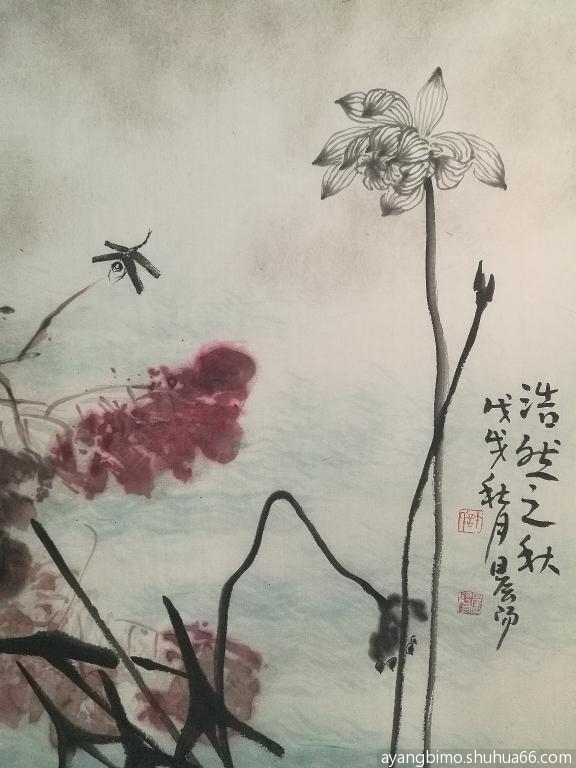 浩然之秋
戊戌秋月晨阳
ayangbimo.shuhua66.com